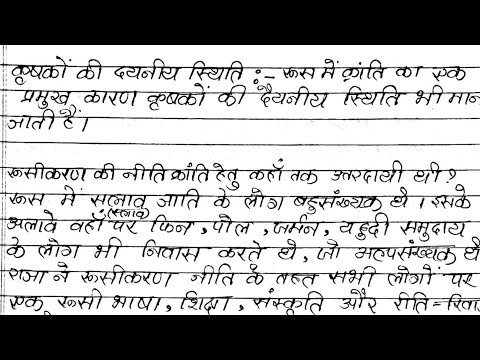 कृषकों की दयनीय स्थिति :- रूस में क्रांति का एक
प्रमुख कारण कृषकों की दैयनीय स्थिति भी मान
जाती हैं।
रूसीकरण की नीति क्रांति हेतु कहाँ तक उत्तरदायी थी ?
रूस में सल्नाव जाति के लोग बहुसंख्यक थे। इसके
(स्लाव)
अलावे वहाँ पर फिन, पोल, जर्मन, यहूदी समुदाय
के लोग भी निवास करते थे, जो अल्पसंख्यक थे
राजा ने रूसीकरण नीति के तहत सभी लोगों पर
एक रूसी भाषा, शिक्षा, संस्कृति और रीति-रिवा